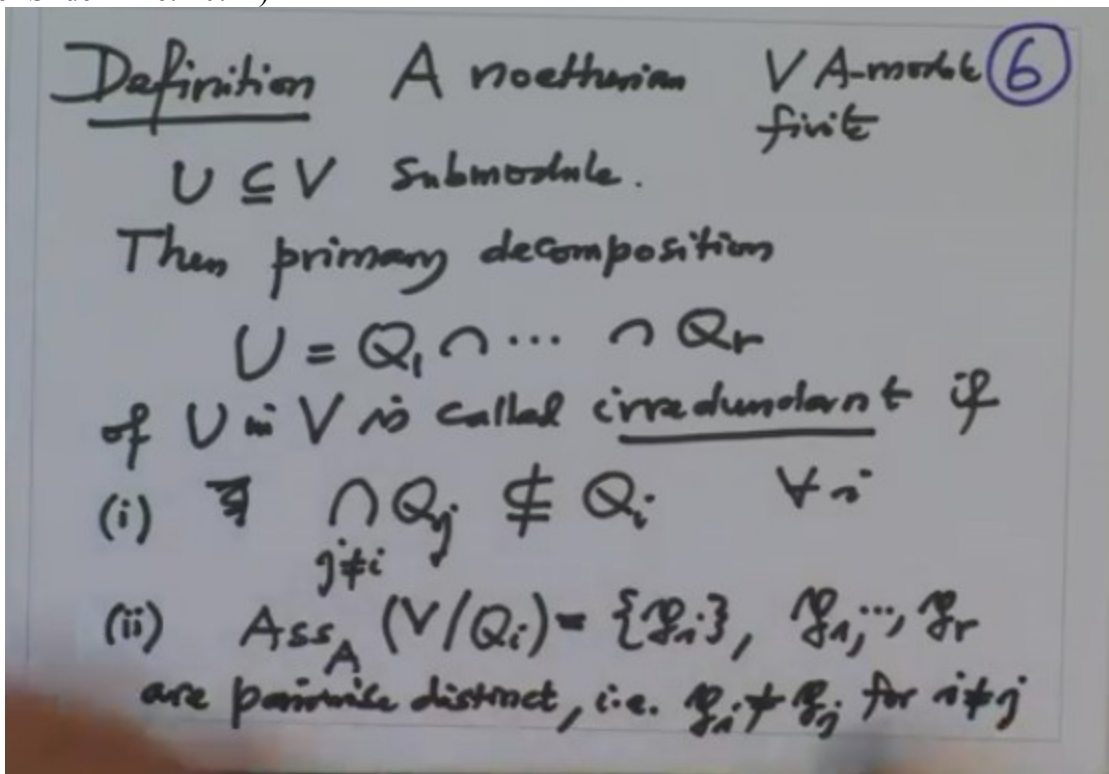 Definition A noetherian V A-module 6
finite
U ⊆ V submodule.
Then primary decomposition
U = Q₁ ∩ ⋯ ∩ Qᵣ
of U in V is called irredundant if
(i) ∩ Qⱼ ⊈ Qᵢ ∀ i
j≠i
(ii) Ass_A (V/Qᵢ) = {𝔭ᵢ}, 𝔭₁, ⋯, 𝔭ᵣ
are pairwise distinct, i.e. 𝔭ᵢ ≠ 𝔭ⱼ for i≠j